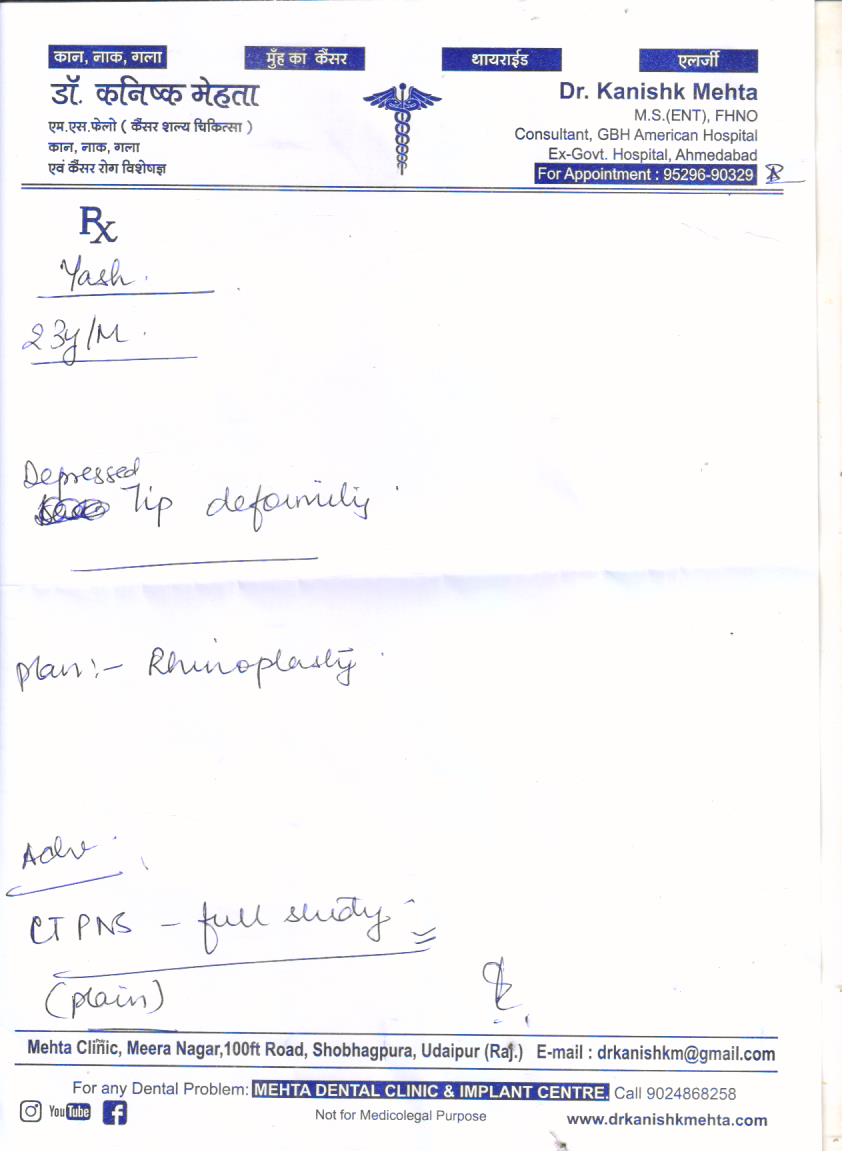 कान, नाक, गला
मुँह का कैंसर
थायराईड
एलर्जी
डॉ. कनिष्क मेहता
एम.एस.फेलो ( कैंसर शल्य चिकित्सा )
कान, नाक, गला
एवं कैंसर रोग विशेषज्ञ
Dr. Kanishk Mehta
M.S.(ENT), FHNO
Consultant, GBH American Hospital
Ex-Govt. Hospital, Ahmedabad
For Appointment : 95296-90329
Rx
Yash.
23y/M.
Depressed
Tip deformity.
plan:- Rhinoplasty.
Adv.
CT PNS - full study
(plain)
Mehta Clinic, Meera Nagar,100ft Road, Shobhagpura, Udaipur (Raj.) E-mail : drkanishkm@gmail.com
For any Dental Problem: MEHTA DENTAL CLINIC & IMPLANT CENTRE. Call 9024868258
YouTube
Not for Medicolegal Purpose
www.drkanishkmehta.com